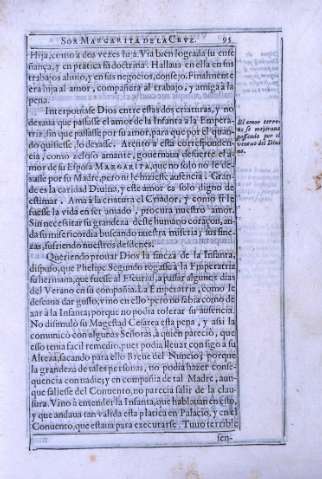 SOR MARGARITA DE LA CRVZ. 95
Hija, como a dos vezes hija. Via bien lograda su ense-
ñança, y en pratica su doctrina. Hallaua en ella en sus
trabajos aliuo, y en sus negocios, consejo. Finalmente
era hija al amor, compañera al trabajo, y amiga a la
pena.
Interponiase Dios entre estas dos criaturas, y no
dexaua que passasse el amor de la Infanta à la Empera-
triz, sin que passasse por su amor, para que por el quan-
do quisiesse, lo dexasse. Atento a esta corresponden-
cia, como zeloso amante, gouernaua de suerte el a-
mor de su Esposa MARGARITA, que no solo no le de-
xasse por su Madre, pero ni le hiziesse ausencia. Gran-
de es la caridad Diuina, y este amor es solo digno de
estimar. Ama à la criatura el Criador, y como si le
fuesse la vida en ser amado, procura nuestro amor.
Sin necessitar su grandeza deste humano coraçon, an-
da su misericordia buscando nuestra miseria, y sus fine-
zas, sufriendo nuestros desdenes.
El amor terre-
no se mejoraua
passando por el
crisol del Diui-
no.
Queriendo prouar Dios la fineza de la Infanta,
dispuso, que Phelipe Segundo rogasse à la Emperatriz
su hermana, que fuesse al Escurial, a passar algunos dias
del Verano en su compañia. La Emperatriz, como le
desseaua dar gusto, vino en ello: pero no sabia como de-
xar à la Infanta; porque no podia tolerar su ausencia.
No dissimulò su Magestad Cesarea esta pena, y assi la
comunicò con algunos Señores, à quien pareciò, que
esso tenia facil remedio, pues podia lleuar consigo a su
Alteza, sacando para ello Breue del Nuncio; porque
la grandeza de tales personas, no podia hazer conse-
quencia con nadie; y en compañia de tal Madre, aun-
que saliesse del Conuento, no parecia salir de la clau-
sura. Vino à entender la Infanta, que hablauan en esto,
y que andaua tan valida esta platica en Palacio, y en el
Conuento, que estaua para executarse. Tuuo terrible
sen-